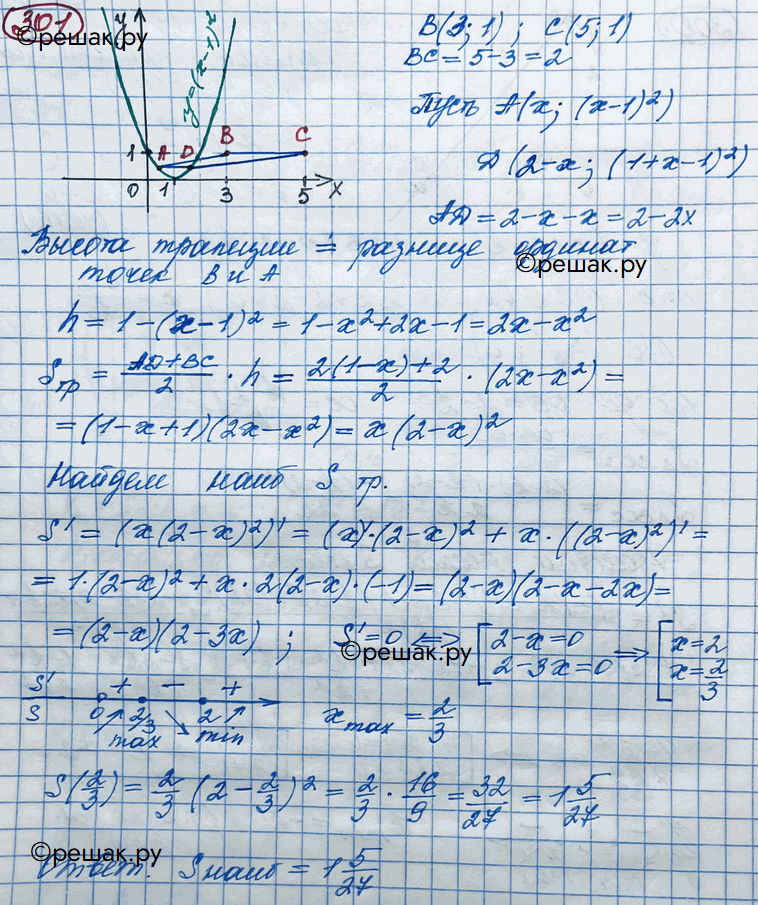 301
©решак.ру
y
y=(x-1)²
1
A
D
B
C
0
1
3
5
x
B(3; 1) ; C(5; 1)
BC = 5-3 = 2
Пусть A(x; (x-1)²)
D(2-x; (1+x-1)²)
AD = 2-x-x = 2-2x
Высота трапеции = разнице ординат
точек B и A
©решак.ру
h = 1-(x-1)² = 1-x²+2x-1 = 2x-x²
Sтр = (AD+BC)/2 · h = (2(1-x)+2)/2 · (2x-x²) =
= (1-x+1)(2x-x²) = x(2-x)²
Найдем наиб S тр.
S' = (x(2-x)²)' = (x)'·(2-x)² + x·((2-x)²)' =
= 1·(2-x)² + x·2(2-x)·(-1) = (2-x)(2-x-2x) =
= (2-x)(2-3x) ; S'=0 ⇔ [2-x=0 2-3x=0 ⇒ [x=2 x=2/3
©решак.ру
S' + - +
S 0 ↑ 2/3 ↘ 2 ↑
max min
xmax = 2/3
S(2/3) = 2/3 (2-2/3)² = 2/3 · 16/9 = 32/27 = 1 5/27
©решак.ру
Ответ: Sнаиб = 1 5/27